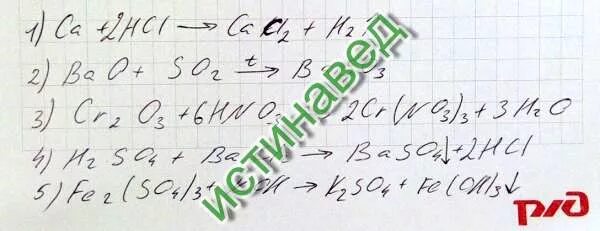 1) Ca + 2HCl → CaCl₂ + H₂↑
2) BaO + SO₂ —t→
3) Cr₂O₃ + 6HNO₃ 2Cr(NO₃)₃ + 3H₂O
4) H₂SO₄ + → BaSO₄↓ + 2HCl
5) Fe₂(SO₄)₃ + → K₂SO₄ + Fe(OH)₃↓
ИСТИНАВЕД
РЖД